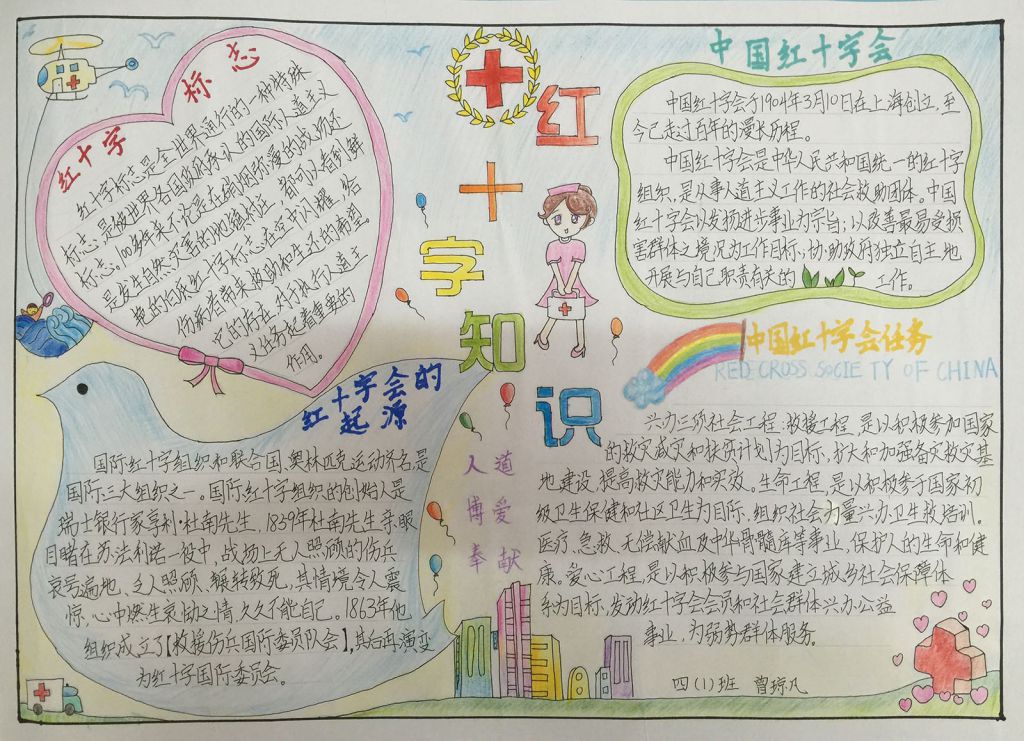 红十字标志
红十字标志是全世界通行的一种特殊
标志,是被世界各国政府承认的国际人道主义
标志。100多年来不论是在硝烟弥漫的战场还
是发生自然灾害的地镇村庄,都可以看到鲜
艳的白底红十字标志在空中闪耀,给
伤病者带来被救助和生还的希望。
它的存在,对于执行人道主
义任务起着重要的
作用。
红
十
字
知
识
人道
博爱
奉献
中国红十字会
中国红十字会于1904年3月10日在上海创立,至
今已走过百年的漫长历程。
中国红十字会是中华人民共和国统一的红十字
组织,是从事人道主义工作的社会救助团体。中国
红十字会以发扬进步事业为宗旨;以改善最易受损
害群体之境况为工作目标,协助政府独立自主地
开展与自己职责有关的工作。
红十字会的
起源
国际红十字组织和联合国、奥林匹克运动齐名是
国际三大组织之一。国际红十字组织的创始人是
瑞士银行家亨利·杜南先生,1859年杜南先生亲眼
目睹在苏法利诺一役中,战场上无人照顾的伤兵
哀号遍地,乏人照顾,辗转致死,其情境令人震
惊,心中燃生哀恸之情,久久不能自己。1863年他
组织成立了【救援伤兵国际委员队会】,其后再演变
为红十字国际委员会。
中国红十字会任务
RED CROSS SOCIETY OF CHINA
兴办三项社会工程:救援工程,是以积极参加国家
的救灾减灾和扶贫计划为目标,扩大和加强备灾救灾基
地建设,提高救灾能力和实效。生命工程,是以积极参于国家初
级卫生保健和社区卫生为目标,组织社会力量兴办卫生救培训。
医疗、急救、无偿献血及中华骨髓库等事业,保护人的生命和健
康。爱心工程,是以积极参与国家建立城乡社会保障体
系为目标,发动红十字会会员和社会群体兴办公益
事业,为弱势群体服务。
四(1)班 曾琼凡